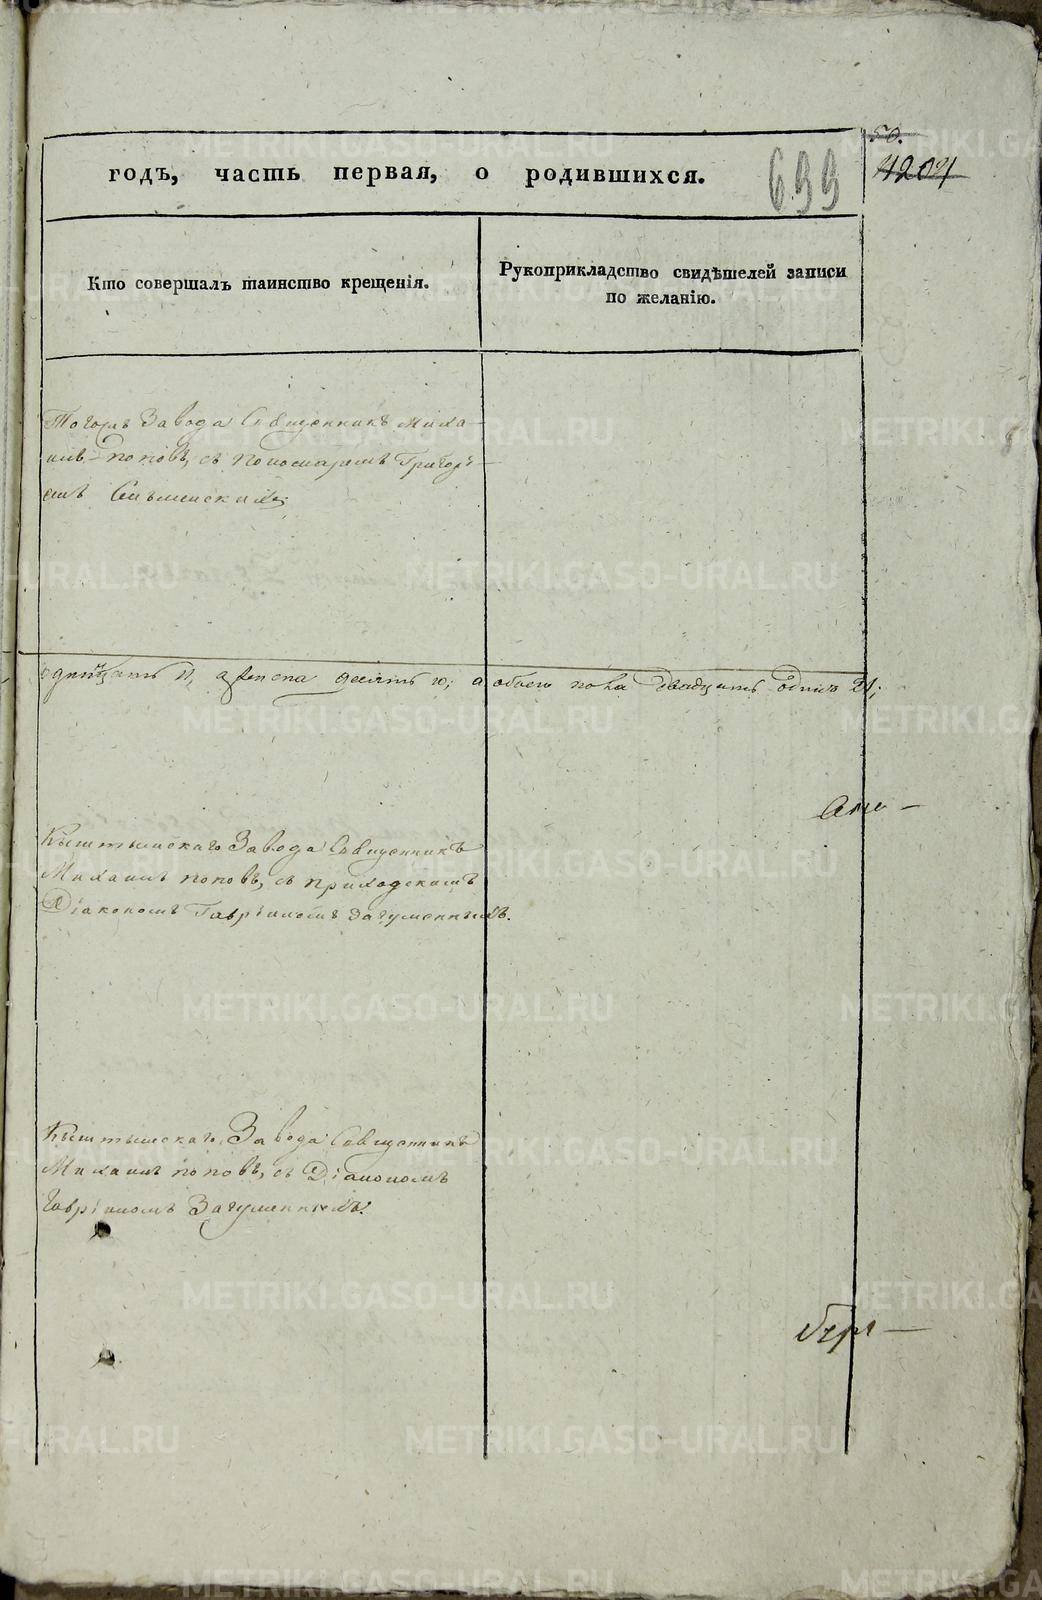 50.
1204
годъ, часть первая, о родившихся.
699
Кто совершалъ таинство крещенія.
Рукоприкладство свидѣтелей записи
по желанію.
Тогожъ Завода Священникъ Миха-
илъ поповъ, съ пономаремъ Григорі-
емъ
одинцать 11, а женска десять 10; а обоего пола двадцать одинъ 21;
Кыштымскаго Завода Священникъ
Михаилъ поповъ, съ приходскимъ
Діакономъ Гавріиломъ Загуменнымъ.
Кыштымскаго Завода Священникъ
Михаилъ поповъ, съ Діакономъ
Гавріиломъ Загуменнымъ.
METRIKI.GASO-URAL.RU